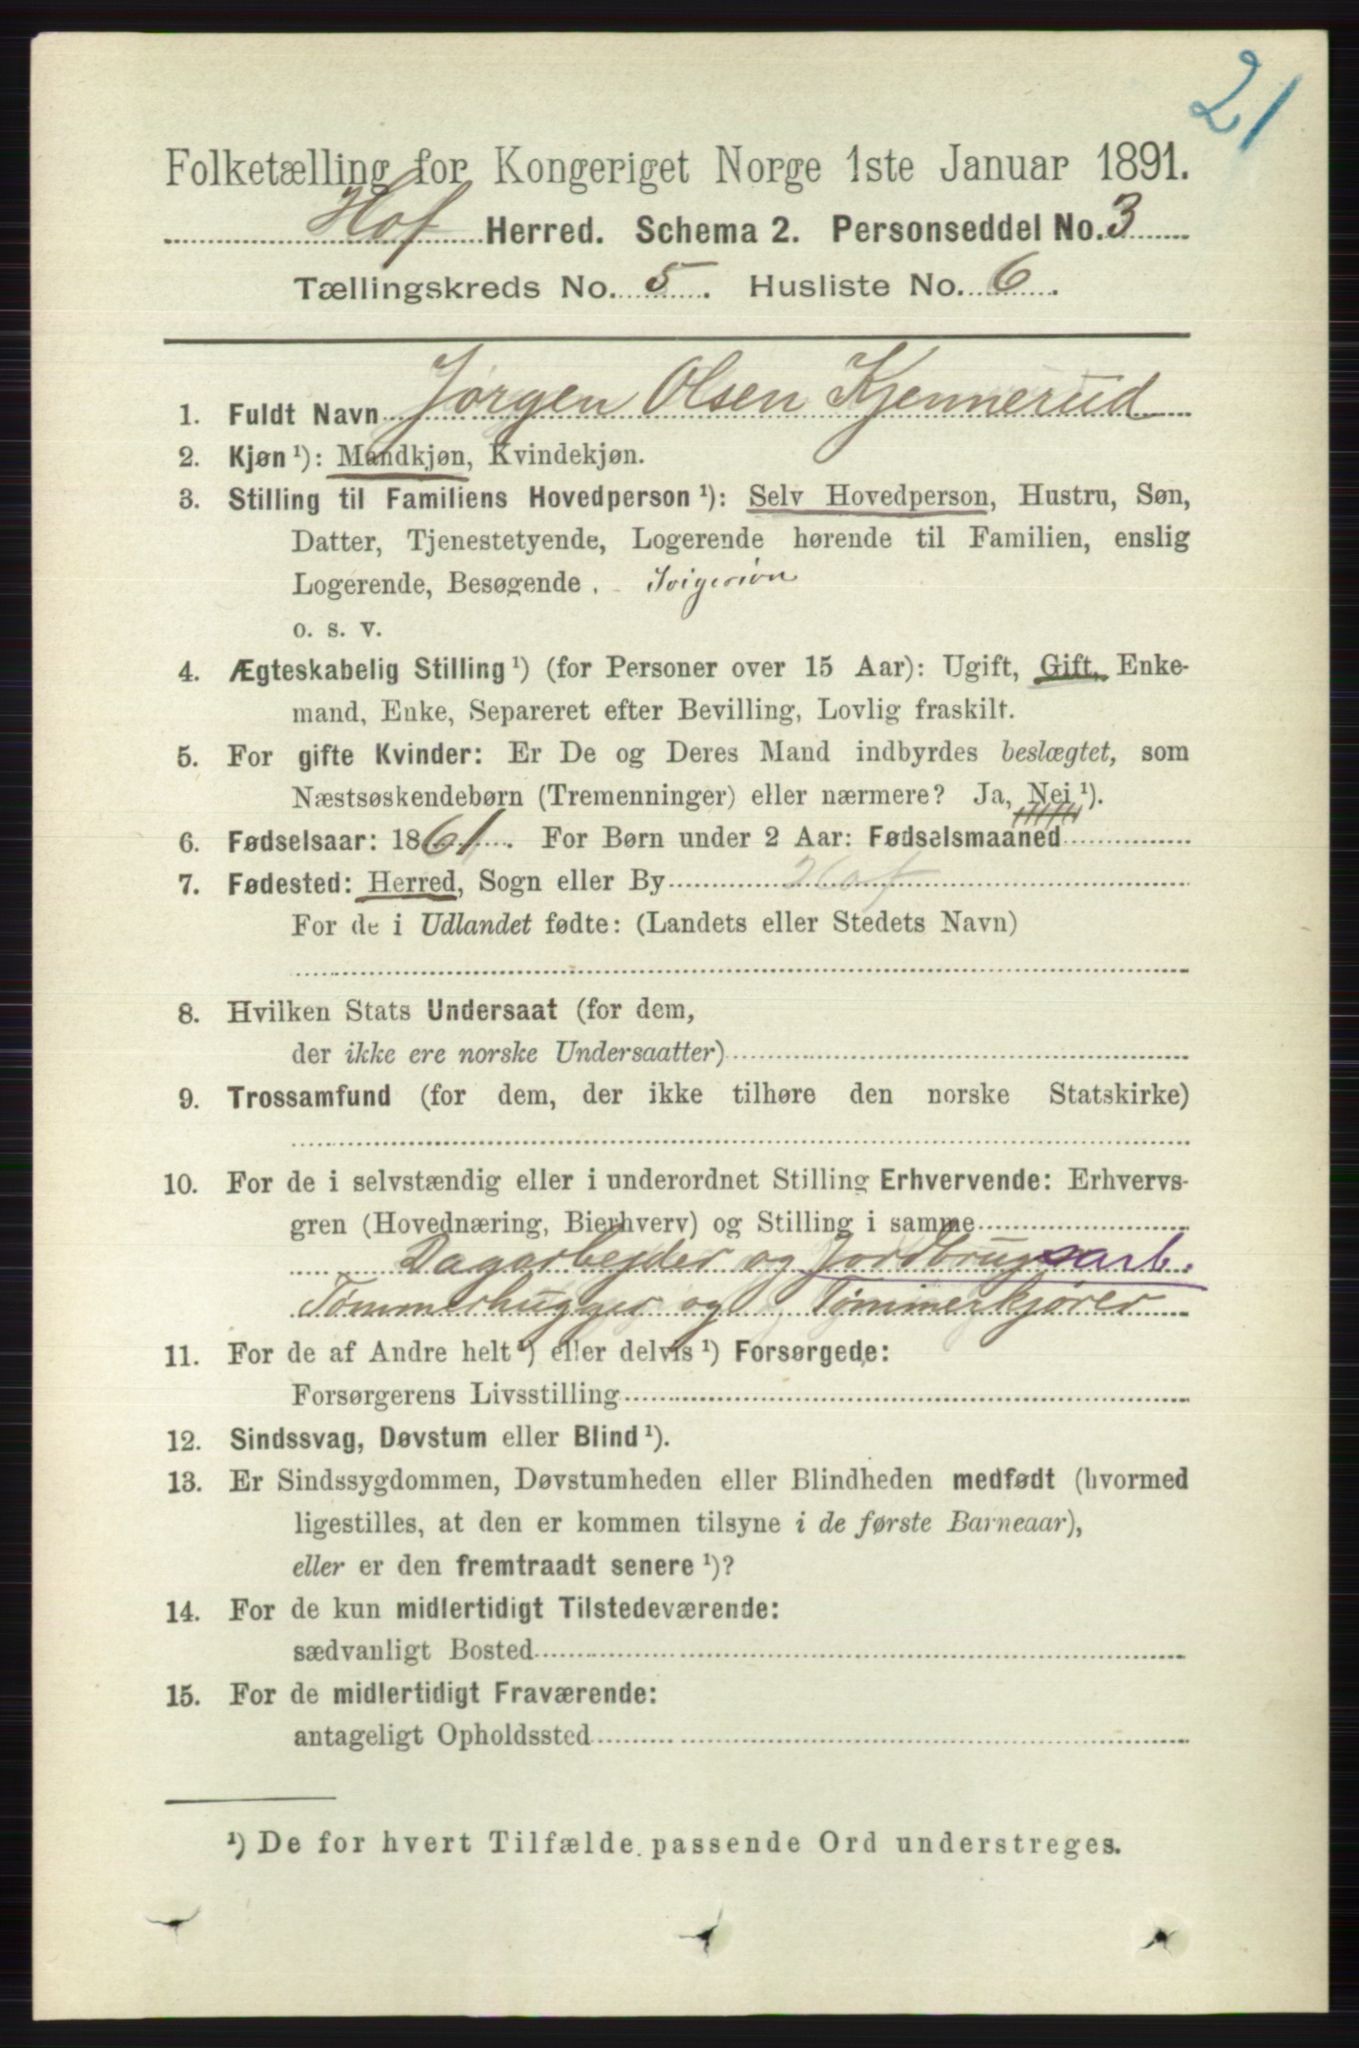 21
Folketælling for Kongeriget Norge 1ste Januar 1891.
Hof Herred. Schema 2. Personseddel No. 3
Tællingskreds No. 5. Husliste No. 6.
1. Fuldt Navn Jørgen Olsen Kjennerud
2. Kjøn ¹): Mandkjøn, Kvindekjøn.
3. Stilling til Familiens Hovedperson ¹): Selv Hovedperson, Hustru, Søn,
Datter, Tjenestetyende, Logerende hørende til Familien, enslig
Logerende, Besøgende. Svigersøn
o. s. v.
4. Ægteskabelig Stilling ¹) (for Personer over 15 Aar): Ugift, Gift, Enke-
mand, Enke, Separeret efter Bevilling, Lovlig fraskilt.
5. For gifte Kvinder: Er De og Deres Mand indbyrdes beslægtet, som
Næstsøskendebørn (Tremenninger) eller nærmere? Ja, Nei ¹).
6. Fødselsaar: 1861. For Børn under 2 Aar: Fødselsmaaned
7. Fødested: Herred, Sogn eller By Hof
For de i Udlandet fødte: (Landets eller Stedets Navn)
8. Hvilken Stats Undersaat (for dem,
der ikke ere norske Undersaatter)
9. Trossamfund (for dem, der ikke tilhøre den norske Statskirke)
10. For de i selvstændig eller i underordnet Stilling Erhvervende: Erhvervs-
gren (Hovednæring, Bierhverv) og Stilling i samme
Dagarbejder og Jordbrugsarb.
Tømmerhugger og Tømmerkjører
11. For de af Andre helt ¹) eller delvis ¹) Forsørgede:
Forsørgerens Livsstilling
12. Sindssvag, Døvstum eller Blind ¹).
13. Er Sindssygdommen, Døvstumheden eller Blindheden medfødt (hvormed
ligestilles, at den er kommen tilsyne i de første Barneaar),
eller er den fremtraadt senere ¹)?
14. For de kun midlertidigt Tilstedeværende:
sædvanligt Bosted
15. For de midlertidigt Fraværende:
antageligt Opholdssted
¹) De for hvert Tilfælde passende Ord understreges.